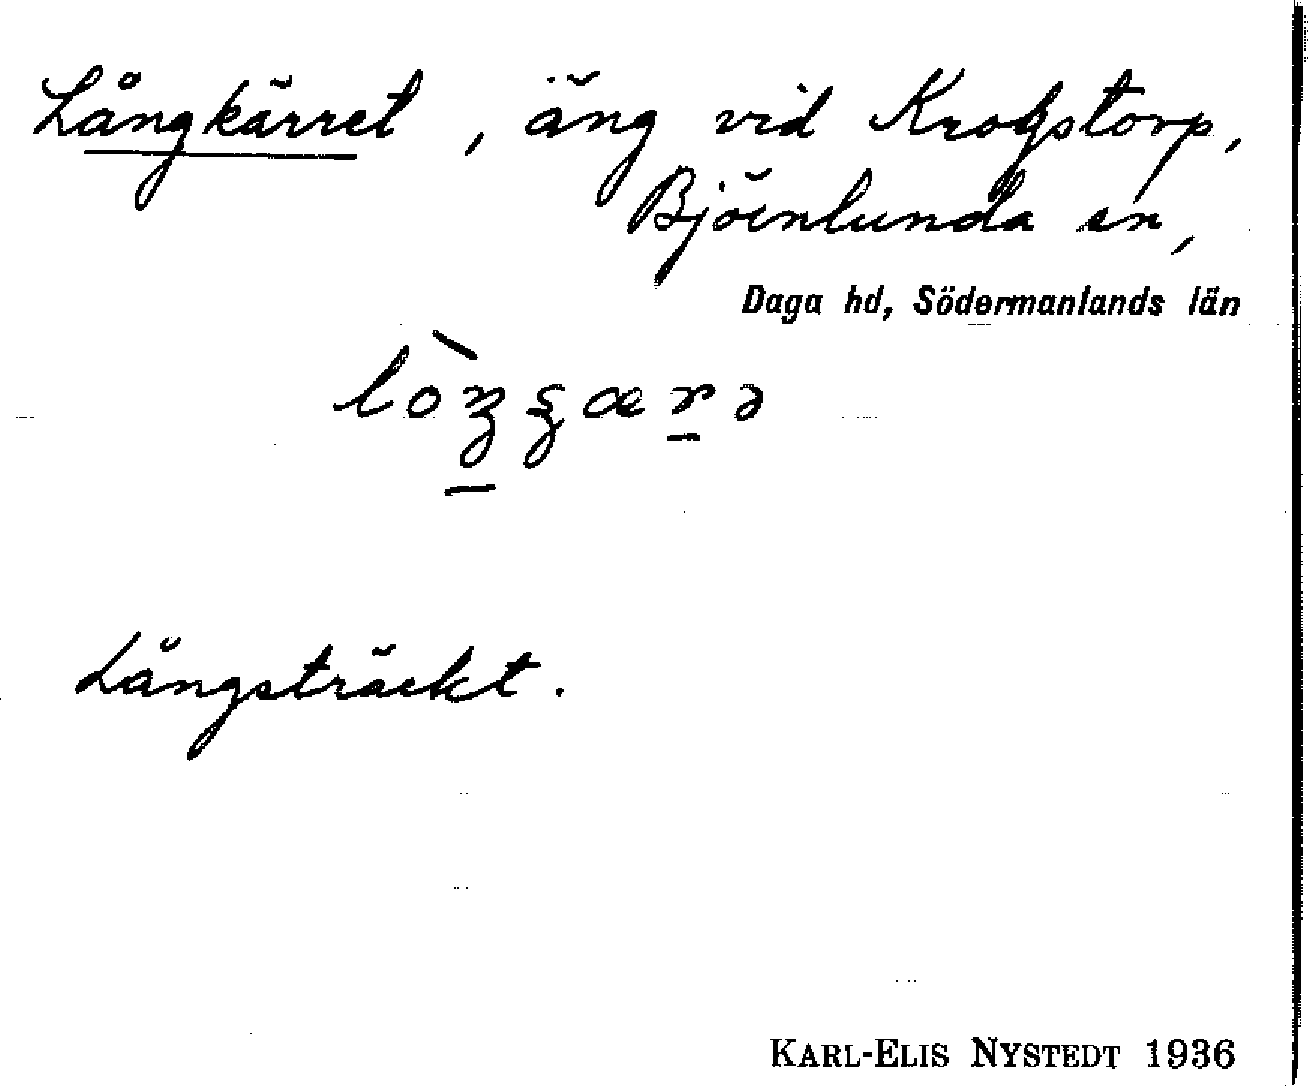 Långkärret, äng vid Krogstorp,
Björnlunda sn,
Daga hd, Södermanlands län
Långsträckt.
KARL-ELIS NYSTEDT 1936